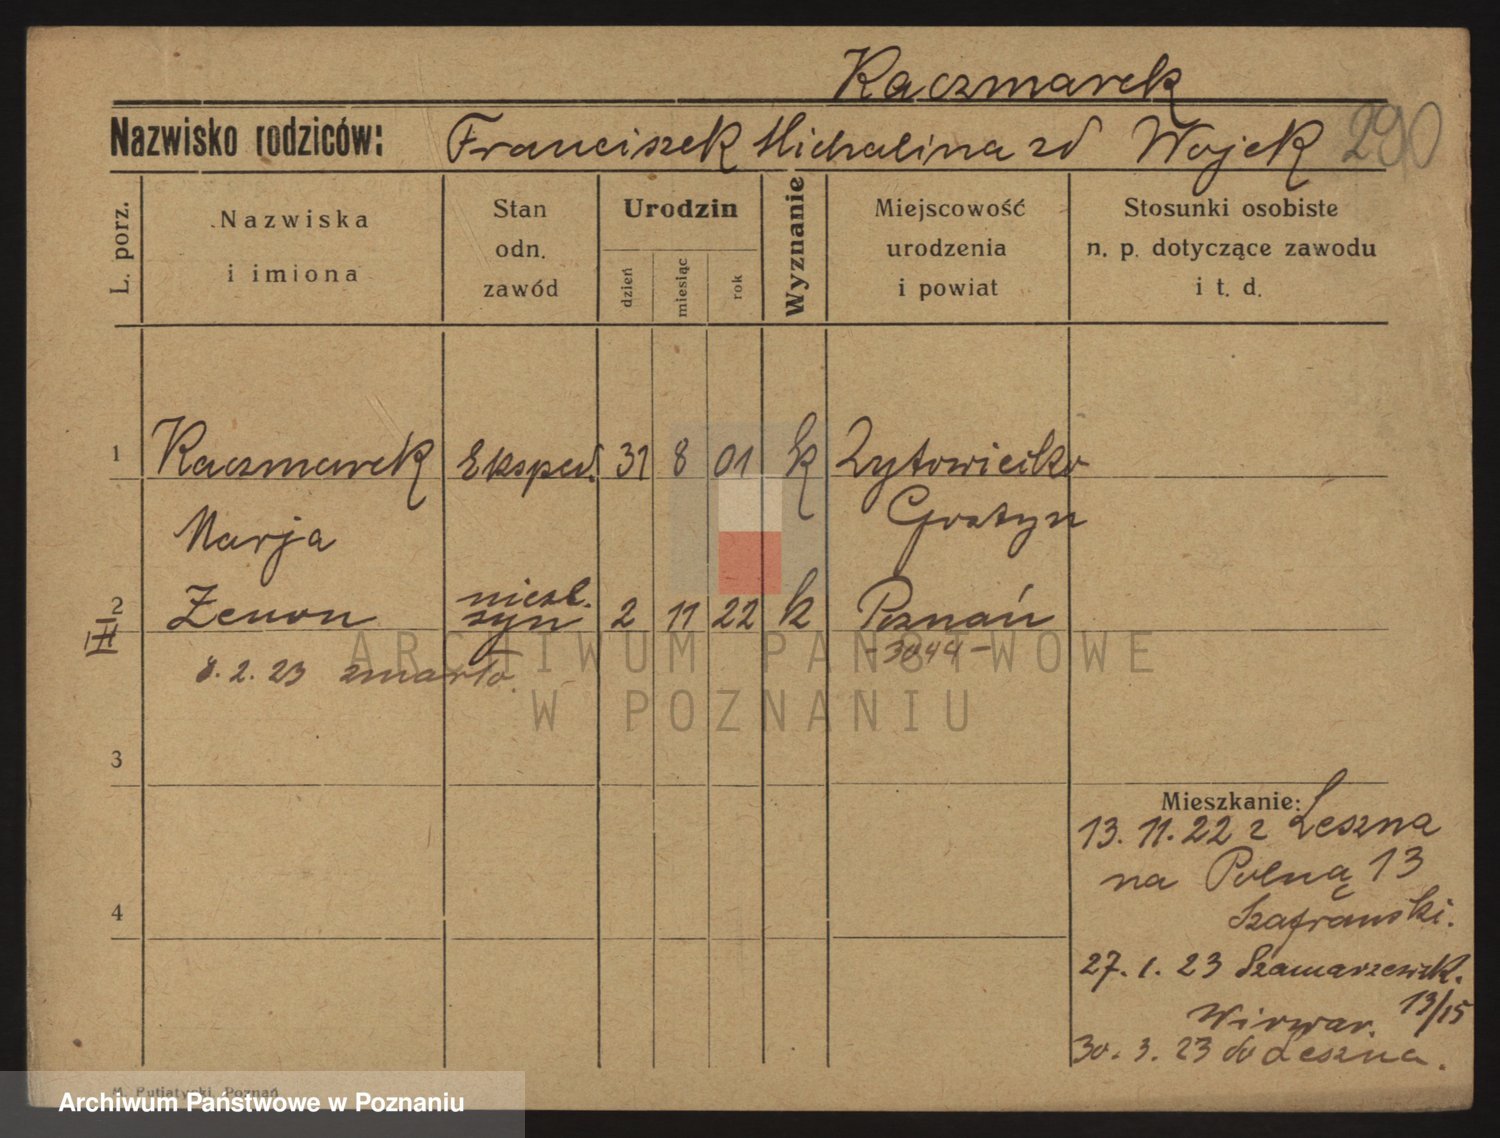 Kaczmarek
Nazwisko rodziców: Franciszek Michalina zd Wojek 290
L. porz.
Nazwiska
i imiona
Stan
odn.
zawód
Urodzin
dzień
miesiąc
rok
Wyznanie
Miejscowość
urodzenia
i powiat
Stosunki osobiste
n. p. dotyczące zawodu
i t. d.
1 Kaczmarek Eksped. 31 8 01 k Żytowiecko
Marja Gostyn
niezl.
2 Zenon syn 2 11 22 k Poznań
II
- 3044 -
8. 2. 23 zmarło.
ARCHIWUM PAŃSTWOWE
W POZNANIU
3
Mieszkanie:
13. 11. 22 z Leszna
na Polną 13
4
Szafrański.
27. 1. 23 Szamarzewsk.
13/15
30. 3. 23 do Leszna.
M. Putiatycki, Poznań
Archiwum Państwowe w Poznaniu